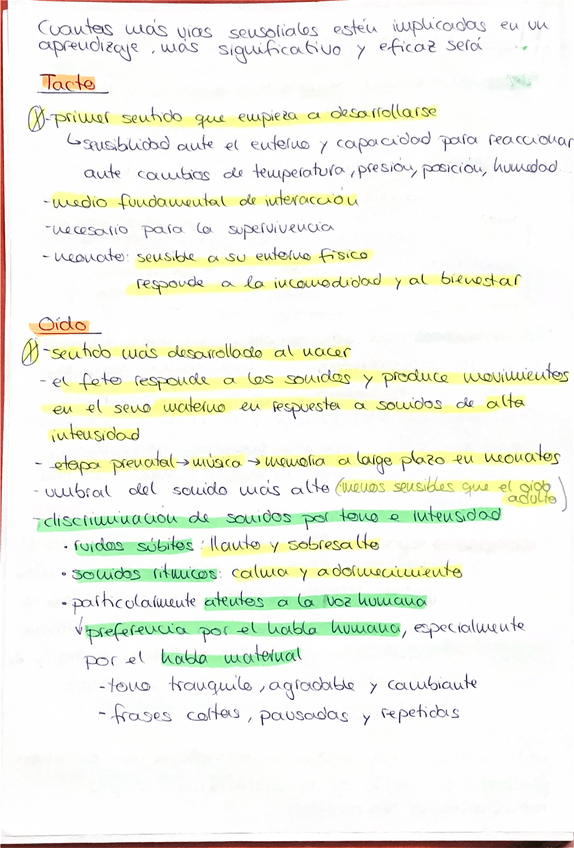 Cuantas más vias sensoriales estén implicadas en un
aprendizaje, más significativo y eficaz será
Tacto
- primer sentido que empieza a desarrollarse
↳ sensibilidad ante el entorno y capacidad para reaccionar
ante cambios de temperatura, presión, posición, humedad
- medio fundamental de interacción
- necesario para la supervivencia
- neonato: sensible a su entorno físico
responde a la incomodidad y al bienestar
Oído
- sentido más desarrollado al nacer
- el feto responde a los sonidos y produce movimientos
en el seno materno en respuesta a sonidos de alta
intensidad
- etapa prenatal → música → memoria a largo plazo en neonatos
- umbral del sonido más alto (menos sensibles que el oído
adulto)
- discriminación de sonidos por tono e intensidad
• ruidos súbitos: llanto y sobresalto
• sonidos rítmicos: calma y adormecimiento
• particularmente atentos a la voz humana
↓ preferencia por el habla humana, especialmente
por el habla maternal
- tono tranquilo, agradable y cambiante
- frases cortas, pausadas y repetidas